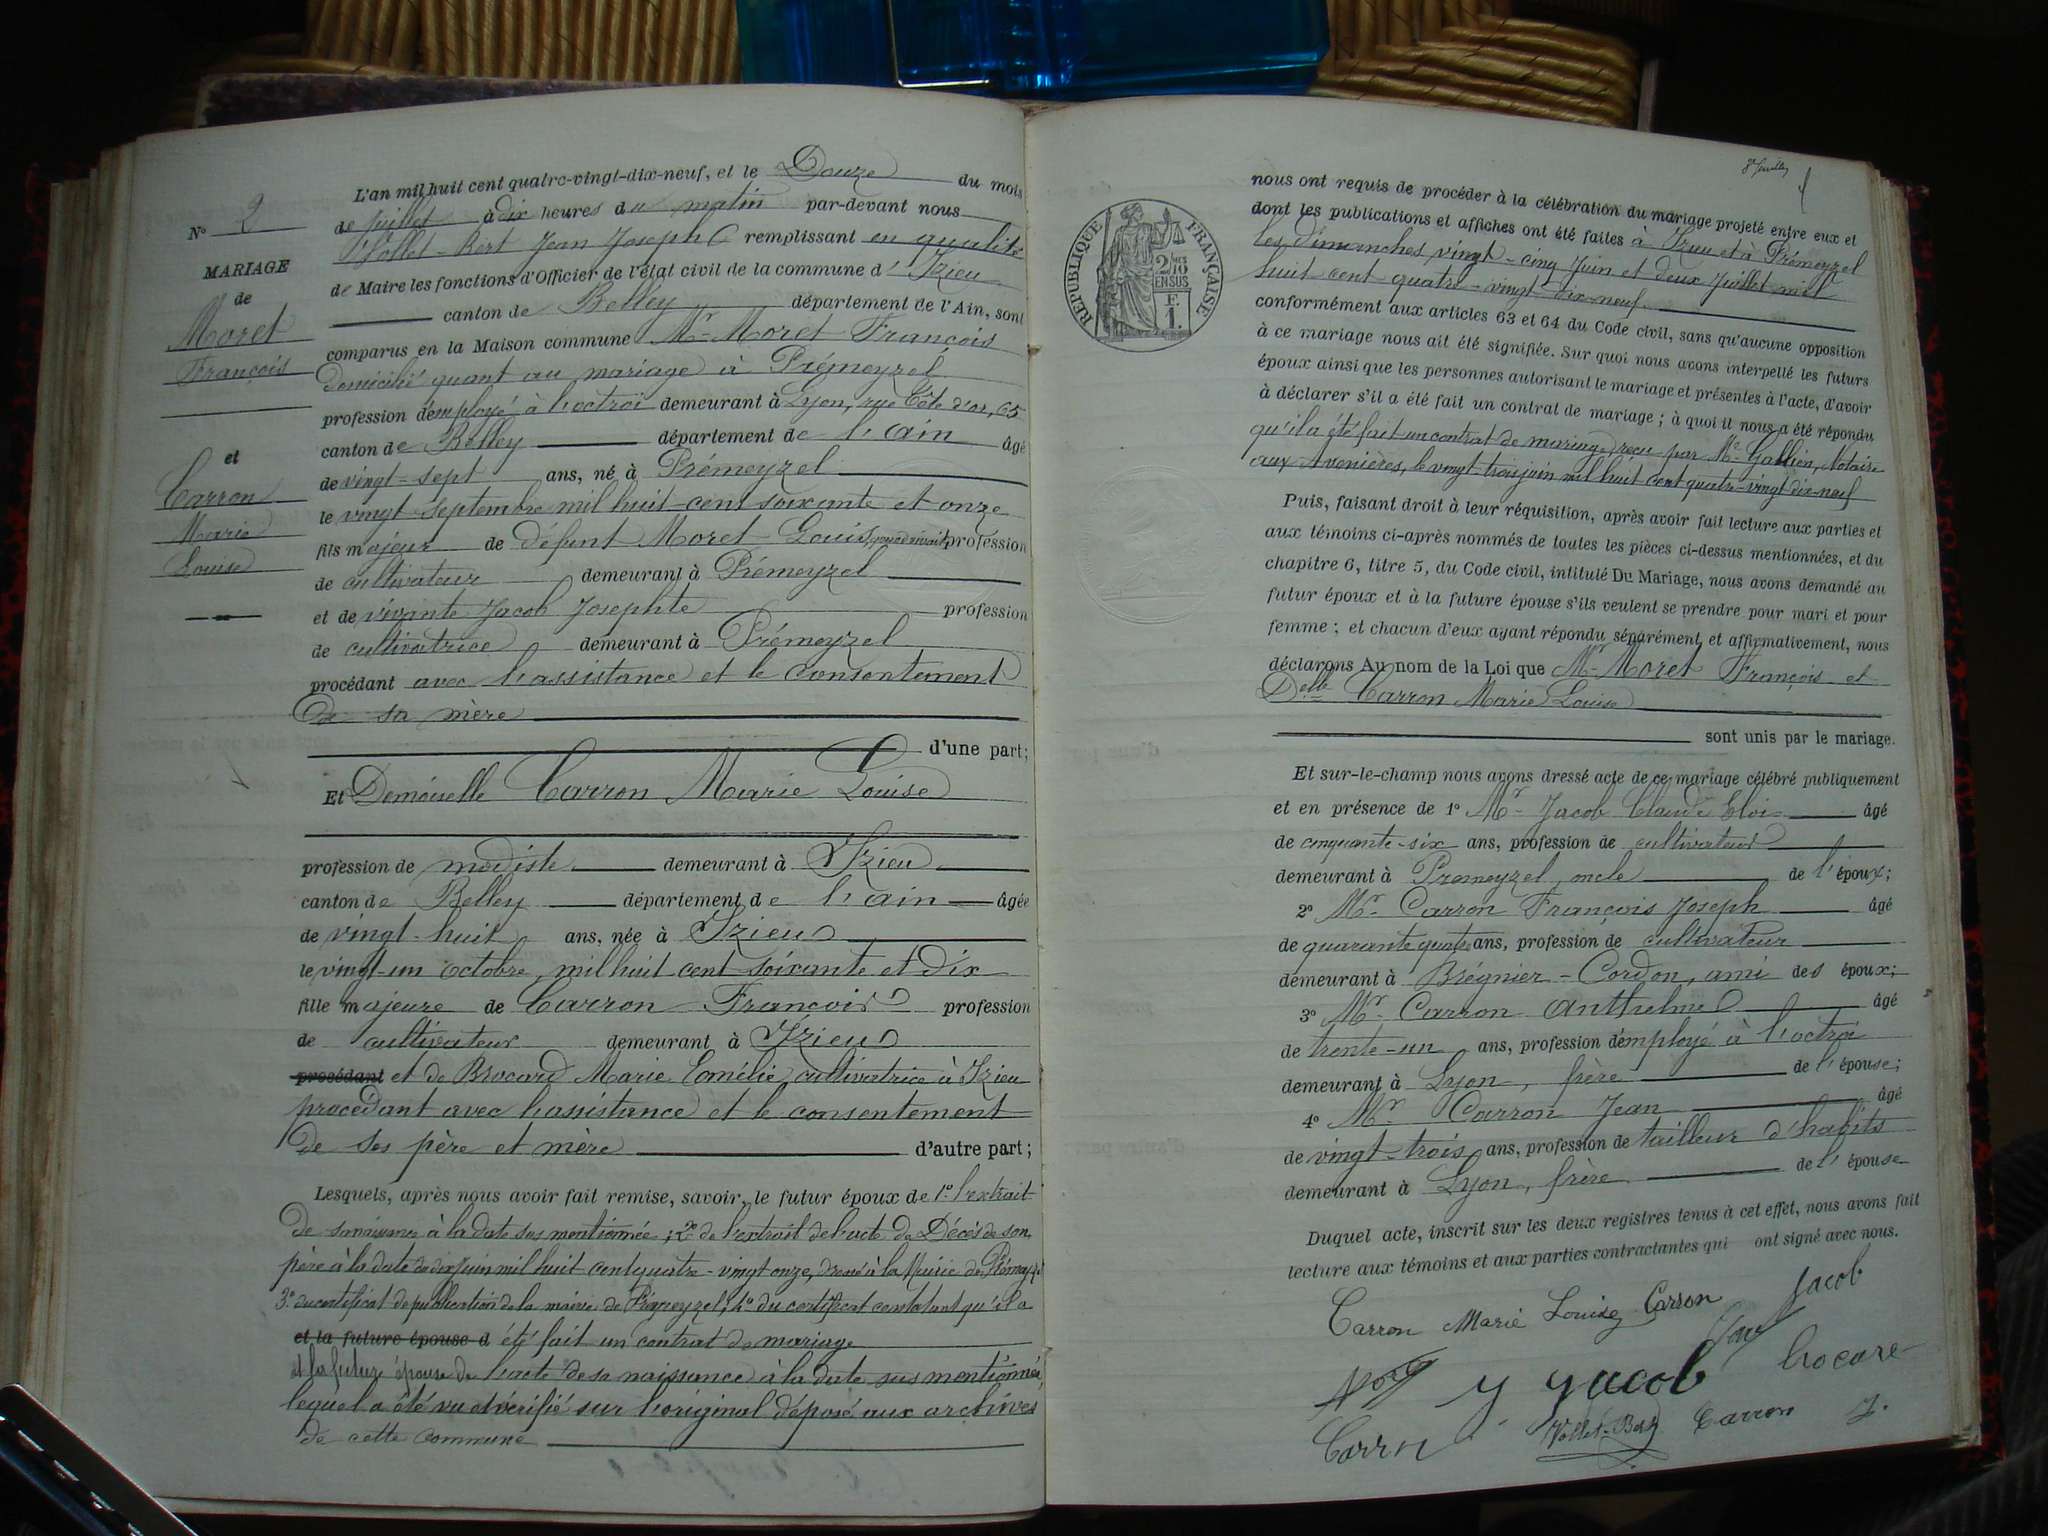 N° 2
MARIAGE
de
Moret
François
et
Carron
Marie
Louise
L'an mil huit cent quatre-vingt-dix-neuf, et le Douze du mois
de juillet à dix heures du matin par-devant nous
Vollet-Bert Jean Joseph remplissant en qualité
de Maire les fonctions d'Officier de l'état civil de la commune d'Izieu
canton de Belley département de l'Ain, sont
comparus en la Maison commune Mr Moret François
domicilié quant au mariage à Prémeyzel
profession d'employé à l'octroi demeurant à Lyon, rue Côte d'or, 65
canton de Belley département de l'ain âgé
de vingt-sept ans, né à Prémeyzel
le vingt septembre mil huit-cent soixante et onze
fils majeur de défunt Moret Louis, profession
de cultivateur demeurant à Prémeyzel
et de vivante Jacob Josephte profession
de cultivatrice demeurant à Prémeyzel
procédant avec l'assistance et le consentement
de sa mère
d'une part;
Et Demoiselle Carron Marie Louise
profession de modiste demeurant à Izieu
canton de Belley département de l'ain âgée
de vingt-huit ans, née à Izieu
le vingt-un octobre, mil huit cent soixante et dix
fille majeure de Carron François profession
de cultivateur demeurant à Izieu
procédant et de Brocard Marie Comélie cultivatrice à Izieu
procédant avec l'assistance et le consentement
de ses père et mère d'autre part;
Lesquels, après nous avoir fait remise, savoir, le futur époux de 1° l'extrait
de sa naissance à la date sus mentionnée; 2° de l'extrait de l'acte de Décès de son
père à la date du dix juin mil huit-cent quatre-vingt onze, dressé à la Mairie de Prémeyzel
3° du certificat de publication de la mairie de Prémeyzel; 4° du certificat constatant qu'il a
et la future épouse d été fait un contrat de mariage
et la future épouse de l'acte de sa naissance à la date sus mentionnée,
lequel a été vu et vérifié sur l'original déposé aux archives
de cette commune
8e feuillet
RÉPUBLIQUE FRANÇAISE
2/10 EN SUS
F.
1.
nous ont requis de procéder à la célébration du mariage projeté entre eux et
dont les publications et affiches ont été faites à Izieu et à Prémeyzel
les dimanches vingt-cinq Juin et deux Juillet mil
huit cent quatre-vingt-dix-neuf.
conformément aux articles 63 et 64 du Code civil, sans qu'aucune opposition
à ce mariage nous ait été signifiée. Sur quoi nous avons interpellé les futurs
époux ainsi que les personnes autorisant le mariage et présentes à l'acte, d'avoir
à déclarer s'il a été fait un contrat de mariage; à quoi il nous a été répondu
qu'il a été fait un contrat de mariage reçu par Me Gallien, Notaire
aux Avenières, le vingt-trois juin mil huit cent quatre-vingt dix-neuf
Puis, faisant droit à leur réquisition, après avoir fait lecture aux parties et
aux témoins ci-après nommés de toutes les pièces ci-dessus mentionnées, et du
chapitre 6, titre 5, du Code civil, intitulé Du Mariage, nous avons demandé au
futur époux et à la future épouse s'ils veulent se prendre pour mari et pour
femme; et chacun d'eux ayant répondu séparément et affirmativement, nous
déclarons Au nom de la Loi que Mr Moret François et
Delle Carron Marie Louise
sont unis par le mariage.
Et sur-le-champ nous avons dressé acte de ce mariage célébré publiquement
et en présence de 1° Mr Jacob Claude Eloi âgé
de cinquante-six ans, profession de cultivateur
demeurant à Premeyzel, oncle de l'époux;
2° Mr Carron François Joseph âgé
de quarante quatre ans, profession de cultivateur
demeurant à Brégnier-Cordon, ami des époux;
3° Mr Carron Anthelme âgé
de trente-un ans, profession d'employé à l'octroi
demeurant à Lyon, frère de l'épouse;
4° Mr Carron Jean âgé
de vingt-trois ans, profession de tailleur d'habits
demeurant à Lyon, frère de l'épouse
Duquel acte, inscrit sur les deux registres tenus à cet effet, nous avons fait
lecture aux témoins et aux parties contractantes qui ont signé avec nous.
Carron Marie Louise Carron Jacob
J Jacob Brocard
Carron Vollet-Bert Carron J.